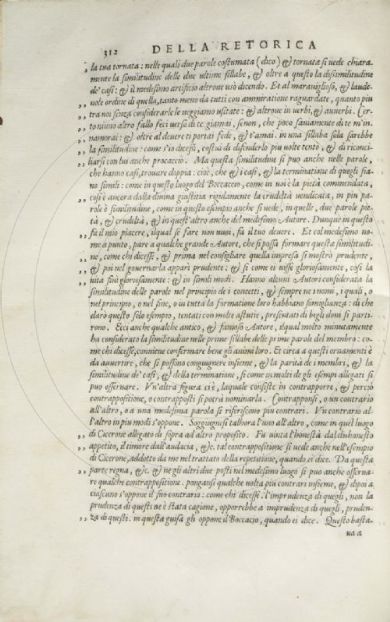 312 DELLA RETORICA
la tua tornata: nelle quali due parole costumata (dico) & tornata si vede chiara-
mente la similitudine delle due ultime sillabe, & oltre a questo la dissimilitudine
de' casi: & il medesimo artificio altrove uiò dicendo. Et al maraviglioso, & laude-
nole ordine di quella, tanto meno da tutti con ammiratione raguardate, quanto piu
tra noi senza considerarle le veggiamo usitate: & altrove in verbi, & auuerbi. Cer-
to niuno altro fallo feci verso di te giamai, se non, che poco saviamente di te m'in-
namorai: & oltre al dovere ti portai fede, & t'amai. in una sillaba sola sarebbe
la similitudine: come s'io dicessi, costui di difenderlo piu volte tentò, & di riconci-
liarsi con lui anche procacciò. Ma questa similitudine si puo anche nelle parole,
che hanno casi, trovare doppia: ciò è, che & i casi, & la terminatione di quegli sia-
no simili: come in questo luogo del Boccaccio, come in voi è la pietà commendata,
così è ancora dalla divina giustitia rigidamente la crudeltà vendicata, in piu pa-
role è similitudine, come in questo esempio anche si vede, in quelle, due parole pie-
tà, & crudeltà, & in quest'altro anche del medesimo Autore. Dunque in questo
fia il mio piacere, ilqual se fare non vuoi, fia il tuo dovere. Et col medesimo no-
me a punto, pare a qualche grande Autore, che si possa formare questa similitudi-
ne, come chi dicesse, & prima nel consigliare quella impresa si mostrò prudente,
& poi nel governarla apparì prudente: & si come ei visse gloriosamente, così la
vita finì gloriosamente: & in simili modi. Hanno alcuni Autori considerata la
similitudine delle parole nel principio de i concetti, & sempre ne i nomi, i quali, o
nel principio, o nel fine, o in tutta la formatione loro habbiano somiglianza: di che
darò questo solo esempio, tentati con molte astutie, presentati di begli doni si parti-
rono. Ecci anche qualche antico, & famoso Autore, ilqual molto minutamente
ha considerato la similitudine nelle prime sillabe delle prime parole del membro: co-
me chi dicesse, conviene confermare bene gli animi loro. Et circa a questi ornamenti è
da avvertire, che si possono congiugnere insieme, & la parità de i membri, & la
similitudine de' casi, & della terminatione, si come in molti de gli esempi allegati si
puo osservare. Un'altra figura ci è, laquale consiste in contrapporre, & perciò
contrapposizione, o contrapposti si potrà nominarla. Contrapponsi, o un contrario
all'altro, o a una medesima parola si riferiscono piu contrari. Un contrario al-
l'altro in piu modi s'oppone. Soggiugnesi talhora l'uno all'altro, come in quel luogo
di Cicerone allegato di sopra ad altro proposito. Fu vinta l'honestà dal dishonesto
appetito, il timore dall'audacia, &c. tal contrapposizione si vede anche nell'esempio
di Cicerone, addotto da me nel trattato della repetitione, quando ei dice. Da questa
parte regna, &c. & ne gli altri due posti nel medesimo luogo si puo anche osserva-
re qualche contrapposizione. pongansi qualche volta piu contrari insieme, & dipoi a
ciascuno s'oppone il suo contrario: come chi dicesse. l'imprudenza di quegli, non la
prudenza di questi ne è stata cagione, opporrebbe a imprudenza di quegli, pruden-
za di questi. in questa guisa gli oppone il Boccaccio, quando ei dice. Questo basta-
ua a